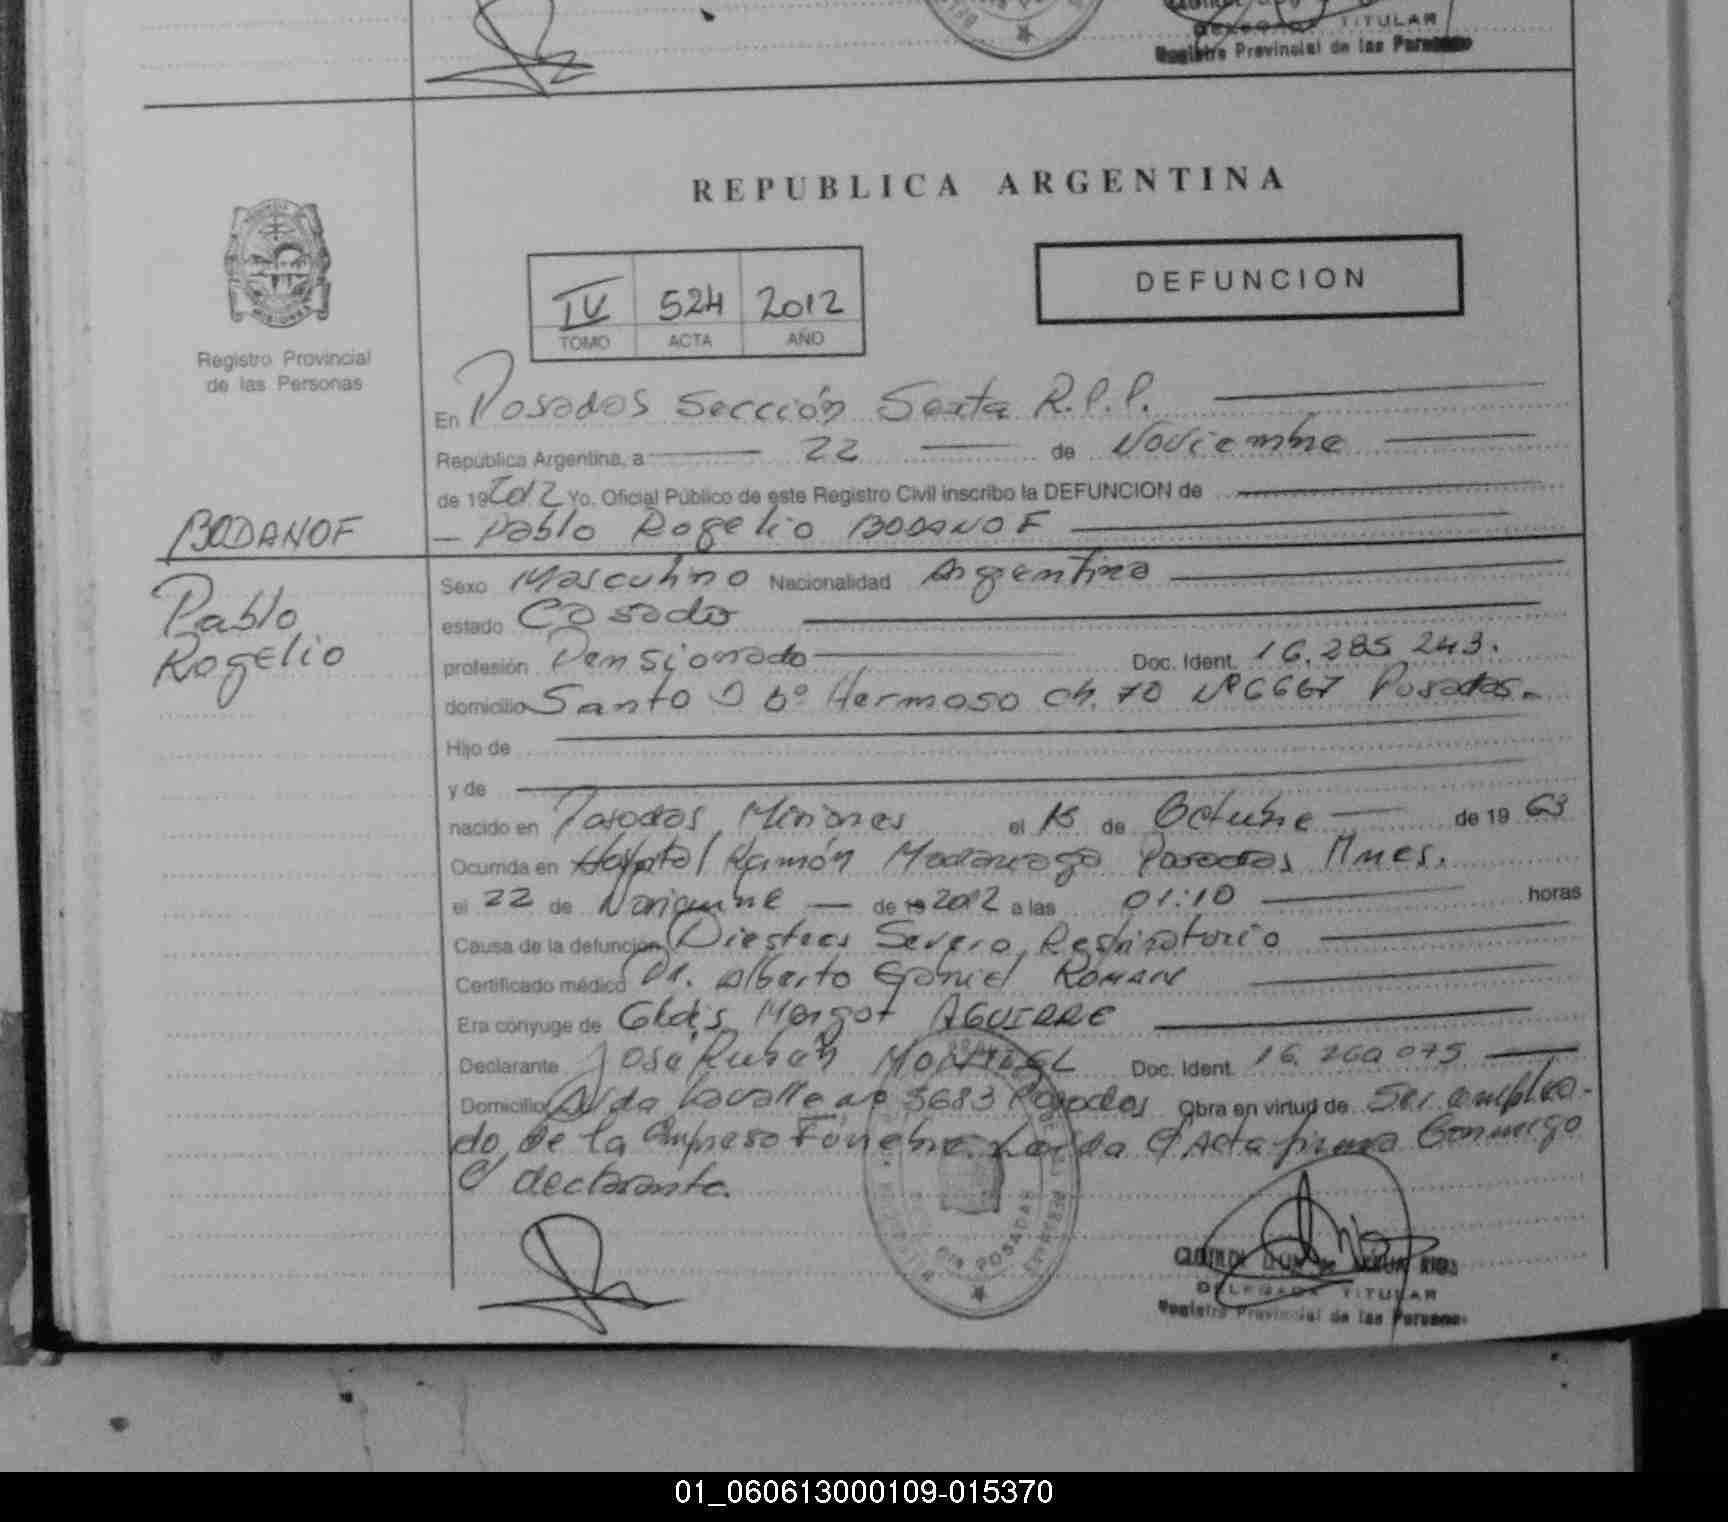 TITULAR
Registro Provincial de las Personas
REPUBLICA ARGENTINA
DEFUNCION
IV 524 2012
TOMO ACTA AÑO
Registro Provincial
de las Personas
En Posadas Sección Sexta R.P.P.
República Argentina, a 22 de Noviembre
de 192012 Yo. Oficial Público de este Registro Civil inscribo la DEFUNCION de
BODANOF
Pablo Rogelio BODANOF
Pablo
Rogelio
Sexo Masculino Nacionalidad Argentina
estado Casado
profesión Pensionado Doc. Ident. 16.285 243.
domicilio Santo D Bº Hermoso Ch. 70 Nº 6667 Posadas.
Hijo de
y de
nacido en Posadas, Misiones el 15 de Octubre de 19 63
Ocurrida en Hospital Ramón Madariaga Posadas Mnes.
el 22 de Noviembre de 192012 a las 01:10 horas
Causa de la defunción Distres Severo Respiratorio
Certificado médico Dr. Alberto Daniel ROMAN
Era cónyuge de Gladis Margot AGUIRRE
Declarante José Rubén MONTIEL Doc. Ident. 16.260 075
Domicilio Avda Lavalle nº 3683 Posadas Obra en virtud de Ser emplea-
do de la Empresa Fúnebre. Leída el Acta firma Conmigo
el declarante.
6ta POSADAS
DELEGADA TITULAR
Registro Provincial de las Personas
01_060613000109-015370